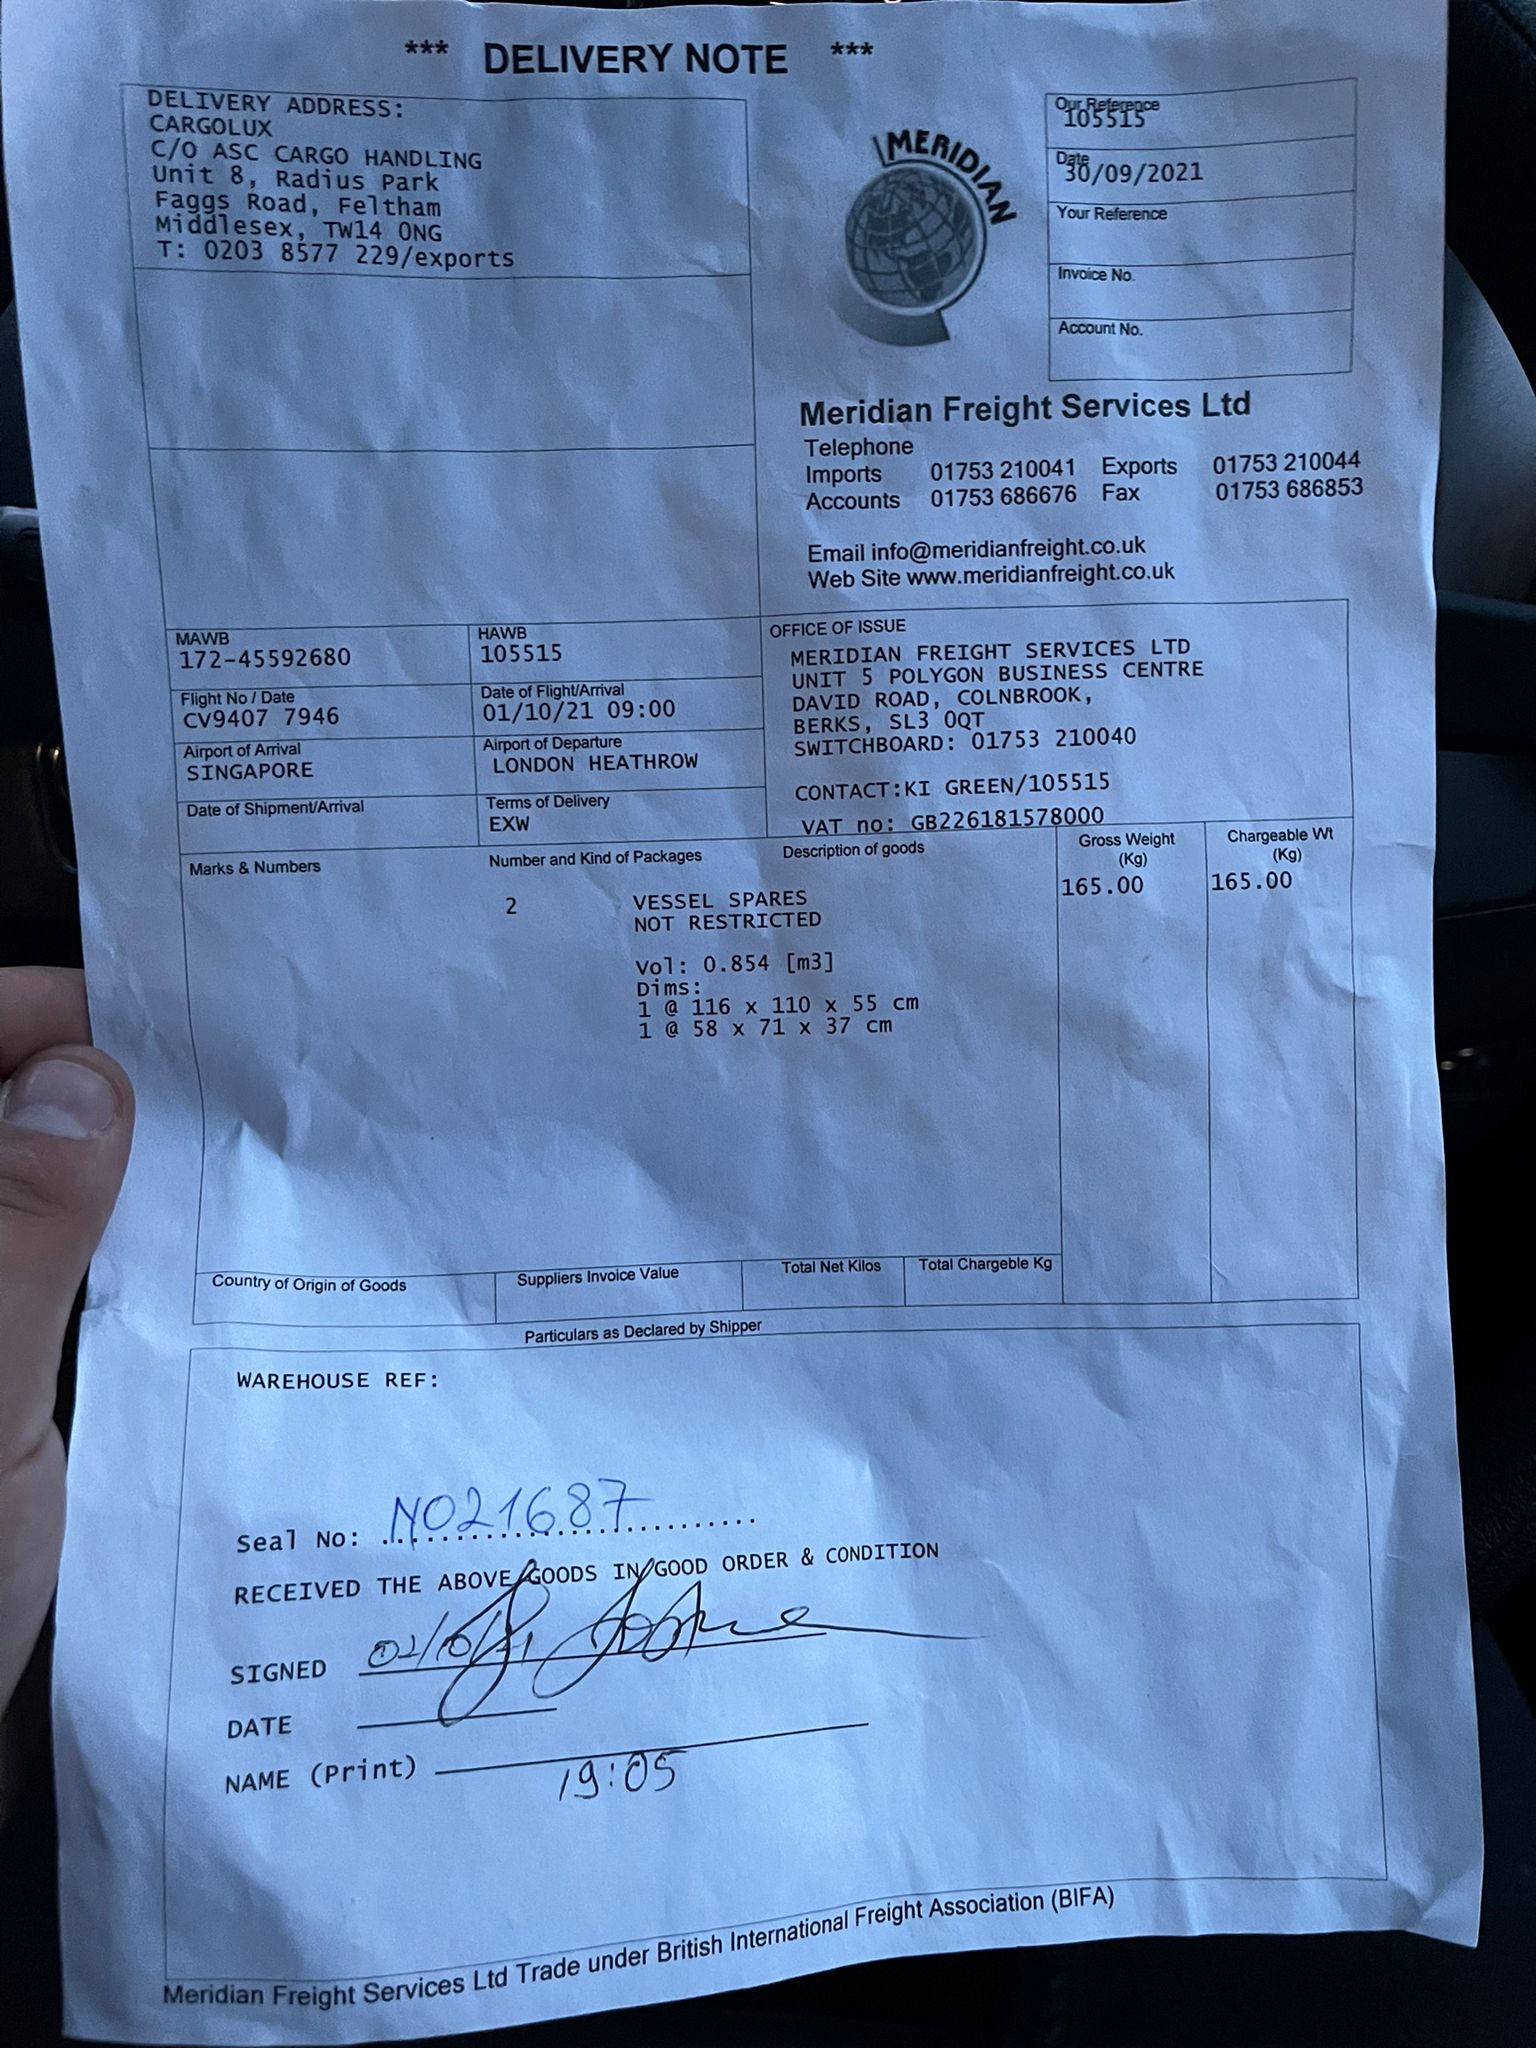 *** DELIVERY NOTE ***
DELIVERY ADDRESS:
CARGOLUX
C/O ASC CARGO HANDLING
Unit 8, Radius Park
Faggs Road, Feltham
Middlesex, TW14 0NG
T: 0203 8577 229/exports
MERIDIAN
Our Reference
105515
Date
30/09/2021
Your Reference
Invoice No.
Account No.
Meridian Freight Services Ltd
Telephone
Imports 01753 210041 Exports 01753 210044
Accounts 01753 686676 Fax 01753 686853
Email info@meridianfreight.co.uk
Web Site www.meridianfreight.co.uk
MAWB
172-45592680
HAWB
105515
Flight No / Date
CV9407 7946
Date of Flight/Arrival
01/10/21 09:00
Airport of Arrival
SINGAPORE
Airport of Departure
LONDON HEATHROW
Date of Shipment/Arrival
Terms of Delivery
EXW
OFFICE OF ISSUE
MERIDIAN FREIGHT SERVICES LTD
UNIT 5 POLYGON BUSINESS CENTRE
DAVID ROAD, COLNBROOK,
BERKS, SL3 0QT
SWITCHBOARD: 01753 210040
CONTACT:KI GREEN/105515
VAT no: GB226181578000
Marks & Numbers
Number and Kind of Packages
Description of goods
Gross Weight
(Kg)
Chargeable Wt
(Kg)
2
VESSEL SPARES
NOT RESTRICTED
165.00
165.00
Vol: 0.854 [m3]
Dims:
1 @ 116 x 110 x 55 cm
1 @ 58 x 71 x 37 cm
Country of Origin of Goods
Suppliers Invoice Value
Total Net Kilos
Total Chargeble Kg
Particulars as Declared by Shipper
WAREHOUSE REF:
Seal No: NO21687
RECEIVED THE ABOVE GOODS IN GOOD ORDER & CONDITION
SIGNED
DATE
NAME (Print)
19:05
Meridian Freight Services Ltd Trade under British International Freight Association (BIFA)